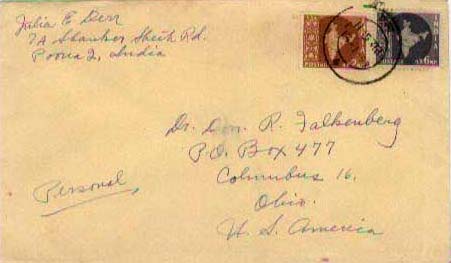 Julia E Derr
7A Shanker Sheth Rd.
Poona 2, India
INDIA
POSTAGE
Dr. Don. R. Falkenberg
P.O. Box 477
Columbus 16.
Ohio.
U. S. America
Personal